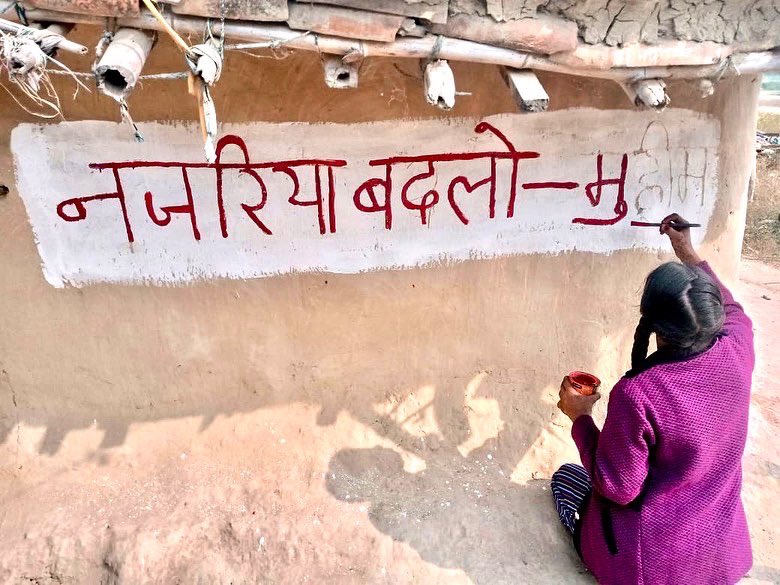 नजरिया बदलो-मुहीम